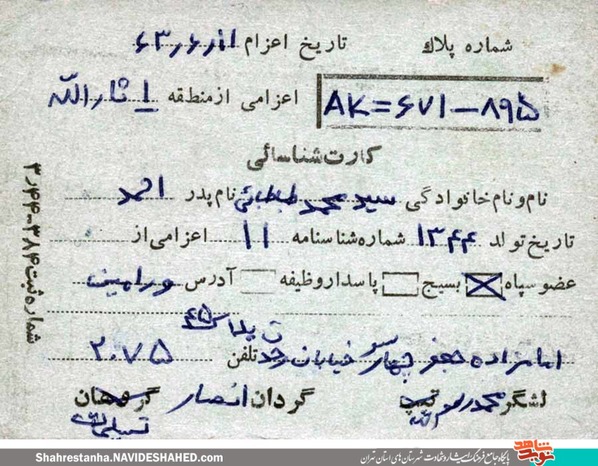 شماره پلاک تاریخ اعزام ۶۳ر۶ر
AK=۶۷۱-۸۹۵ اعزامی از منطقه ۱ ثارالله
کارت شناسائی
نام و نام خانوادگی سید محمد طباطبائی نام پدر احمد
تاریخ تولد ۱۳۴۴ شماره شناسنامه ۱۱ اعزامی از
عضو سپاه بسیج پاسدار وظیفه آدرس ورامین
پلاک ۶۵
امامزاده جعفر چهارسو خیابان تلفن ۲۰۷۵
لشگر محمد رسول الله تیپ گردان انصار گروهان
شماره ثبت ۳۸۴-۳ر۴۴
Shahrestanha.NAVIDESHAHED.com
پایگاه جامع فرهنگ ایثار و شهادت شهرستان های استان تهران
نوید شاهد